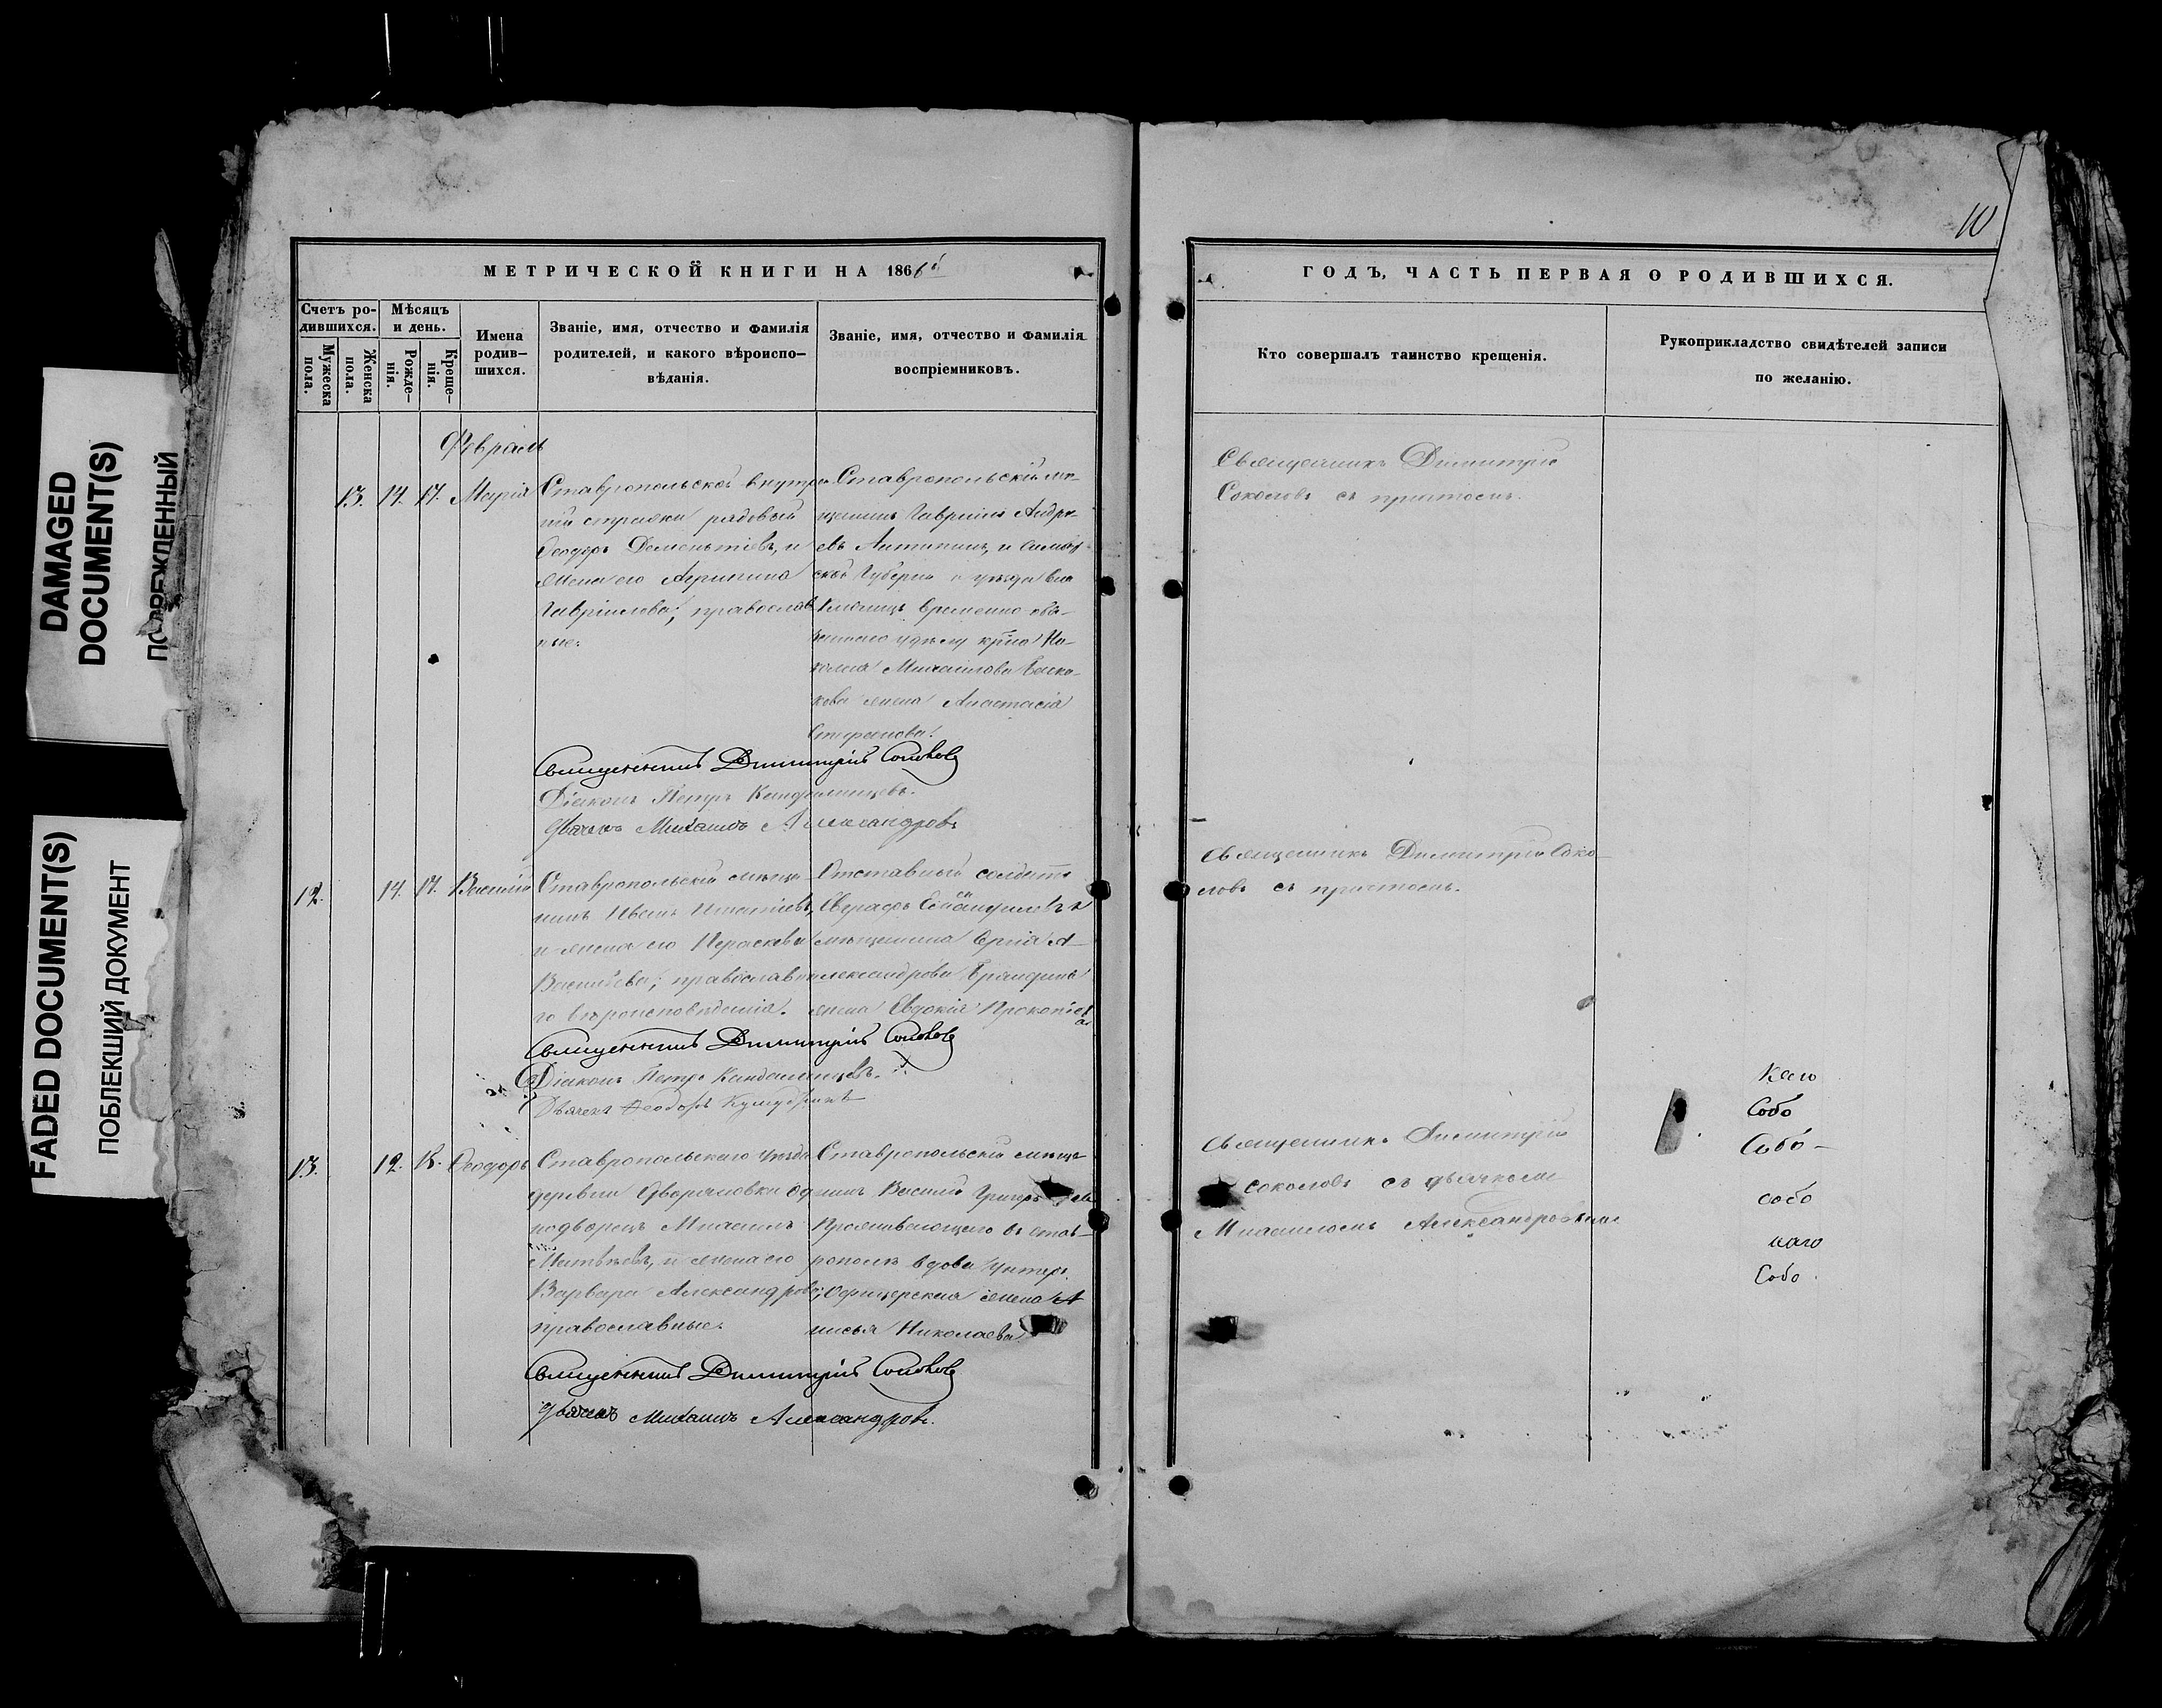 DAMAGED
DOCUMENT(S)
ПОВРЕЖДЕННЫЙ
FADED DOCUMENT(S)
ПОБЛЕКШИЙ ДОКУМЕНТ
10
МЕТРИЧЕСКОЙ КНИГИ НА 1866й
ГОДЪ, ЧАСТЬ ПЕРВАЯ О РОДИВШИХСЯ.
Счетъ ро-
дившихся.
Мужеска
пола.
Женска
пола.
Мѣсяцъ
и день.
Рожде-
нія.
Креще-
нія.
Имена
родив-
шихся.
Званіе, имя, отчество и фамилія
родителей, и какого вѣроиспо-
вѣданія.
Званіе, имя, отчество и фамилія
воспріемниковъ.
Кто совершалъ таинство крещенія.
Рукоприкладство свидѣтелей записи
по желанію.
Февраль
13. 14. 17. Марія
Ставропольской внутре
ней стражи рядовый
Ѳеодоръ Дементіевъ, и
жена его Агрипина
Гавріилова, православ
ные.
Ставропольскій мѣ-
щанинъ Гавріилъ Андре-
евъ Антипинъ, и Симбир
ской Губерніи и уѣзда
временно обя-
заннаго удѣлу кр-на Ни-
колая Михаилова
кова жена Анастасія
Стефанова.
Священникъ Димитрій
Соколовъ съ причтомъ.
Священникъ Димитрій Соколовъ
Діаконъ Петръ Кандалинцевъ.
Дьячекъ Михаилъ Александровъ
12. 14. 17. Василій
Ставропольскій мѣща
нинъ Иванъ Игнатіевъ,
и жена его Параскева
Васильева; православна
го вѣроисповѣданія.
Отставный солдатъ
мѣщанина Сергія А-
лександрова
жена Евдокія Прокопіева
Священникъ Димитрій Соко-
ловъ съ причтомъ.
Священникъ Димитрій Соколовъ
Діаконъ Петръ Кандалинцевъ.
Дьячекъ Ѳеодоръ
13. 12. 18. Ѳеодоръ
Ставропольскаго уѣзда
деревни Дворяновки од
нодворецъ Михаилъ
Матвѣевъ, и жена его
Варвара Александрова;
православные.
Ставропольскій мѣща
нинъ Василій Григорьевъ
Проживающаго въ Став-
рополѣ вдова Унтеръ
Офицерская жена А
нисья Николаева.
Священникъ Димитрій
Соколовъ съ дьячкомъ
Михаиломъ Александровымъ
каго
Собо
Собо-
собо
каго
Собо
Священникъ Димитрій Соколовъ
Дьячекъ Михаилъ Александровъ.